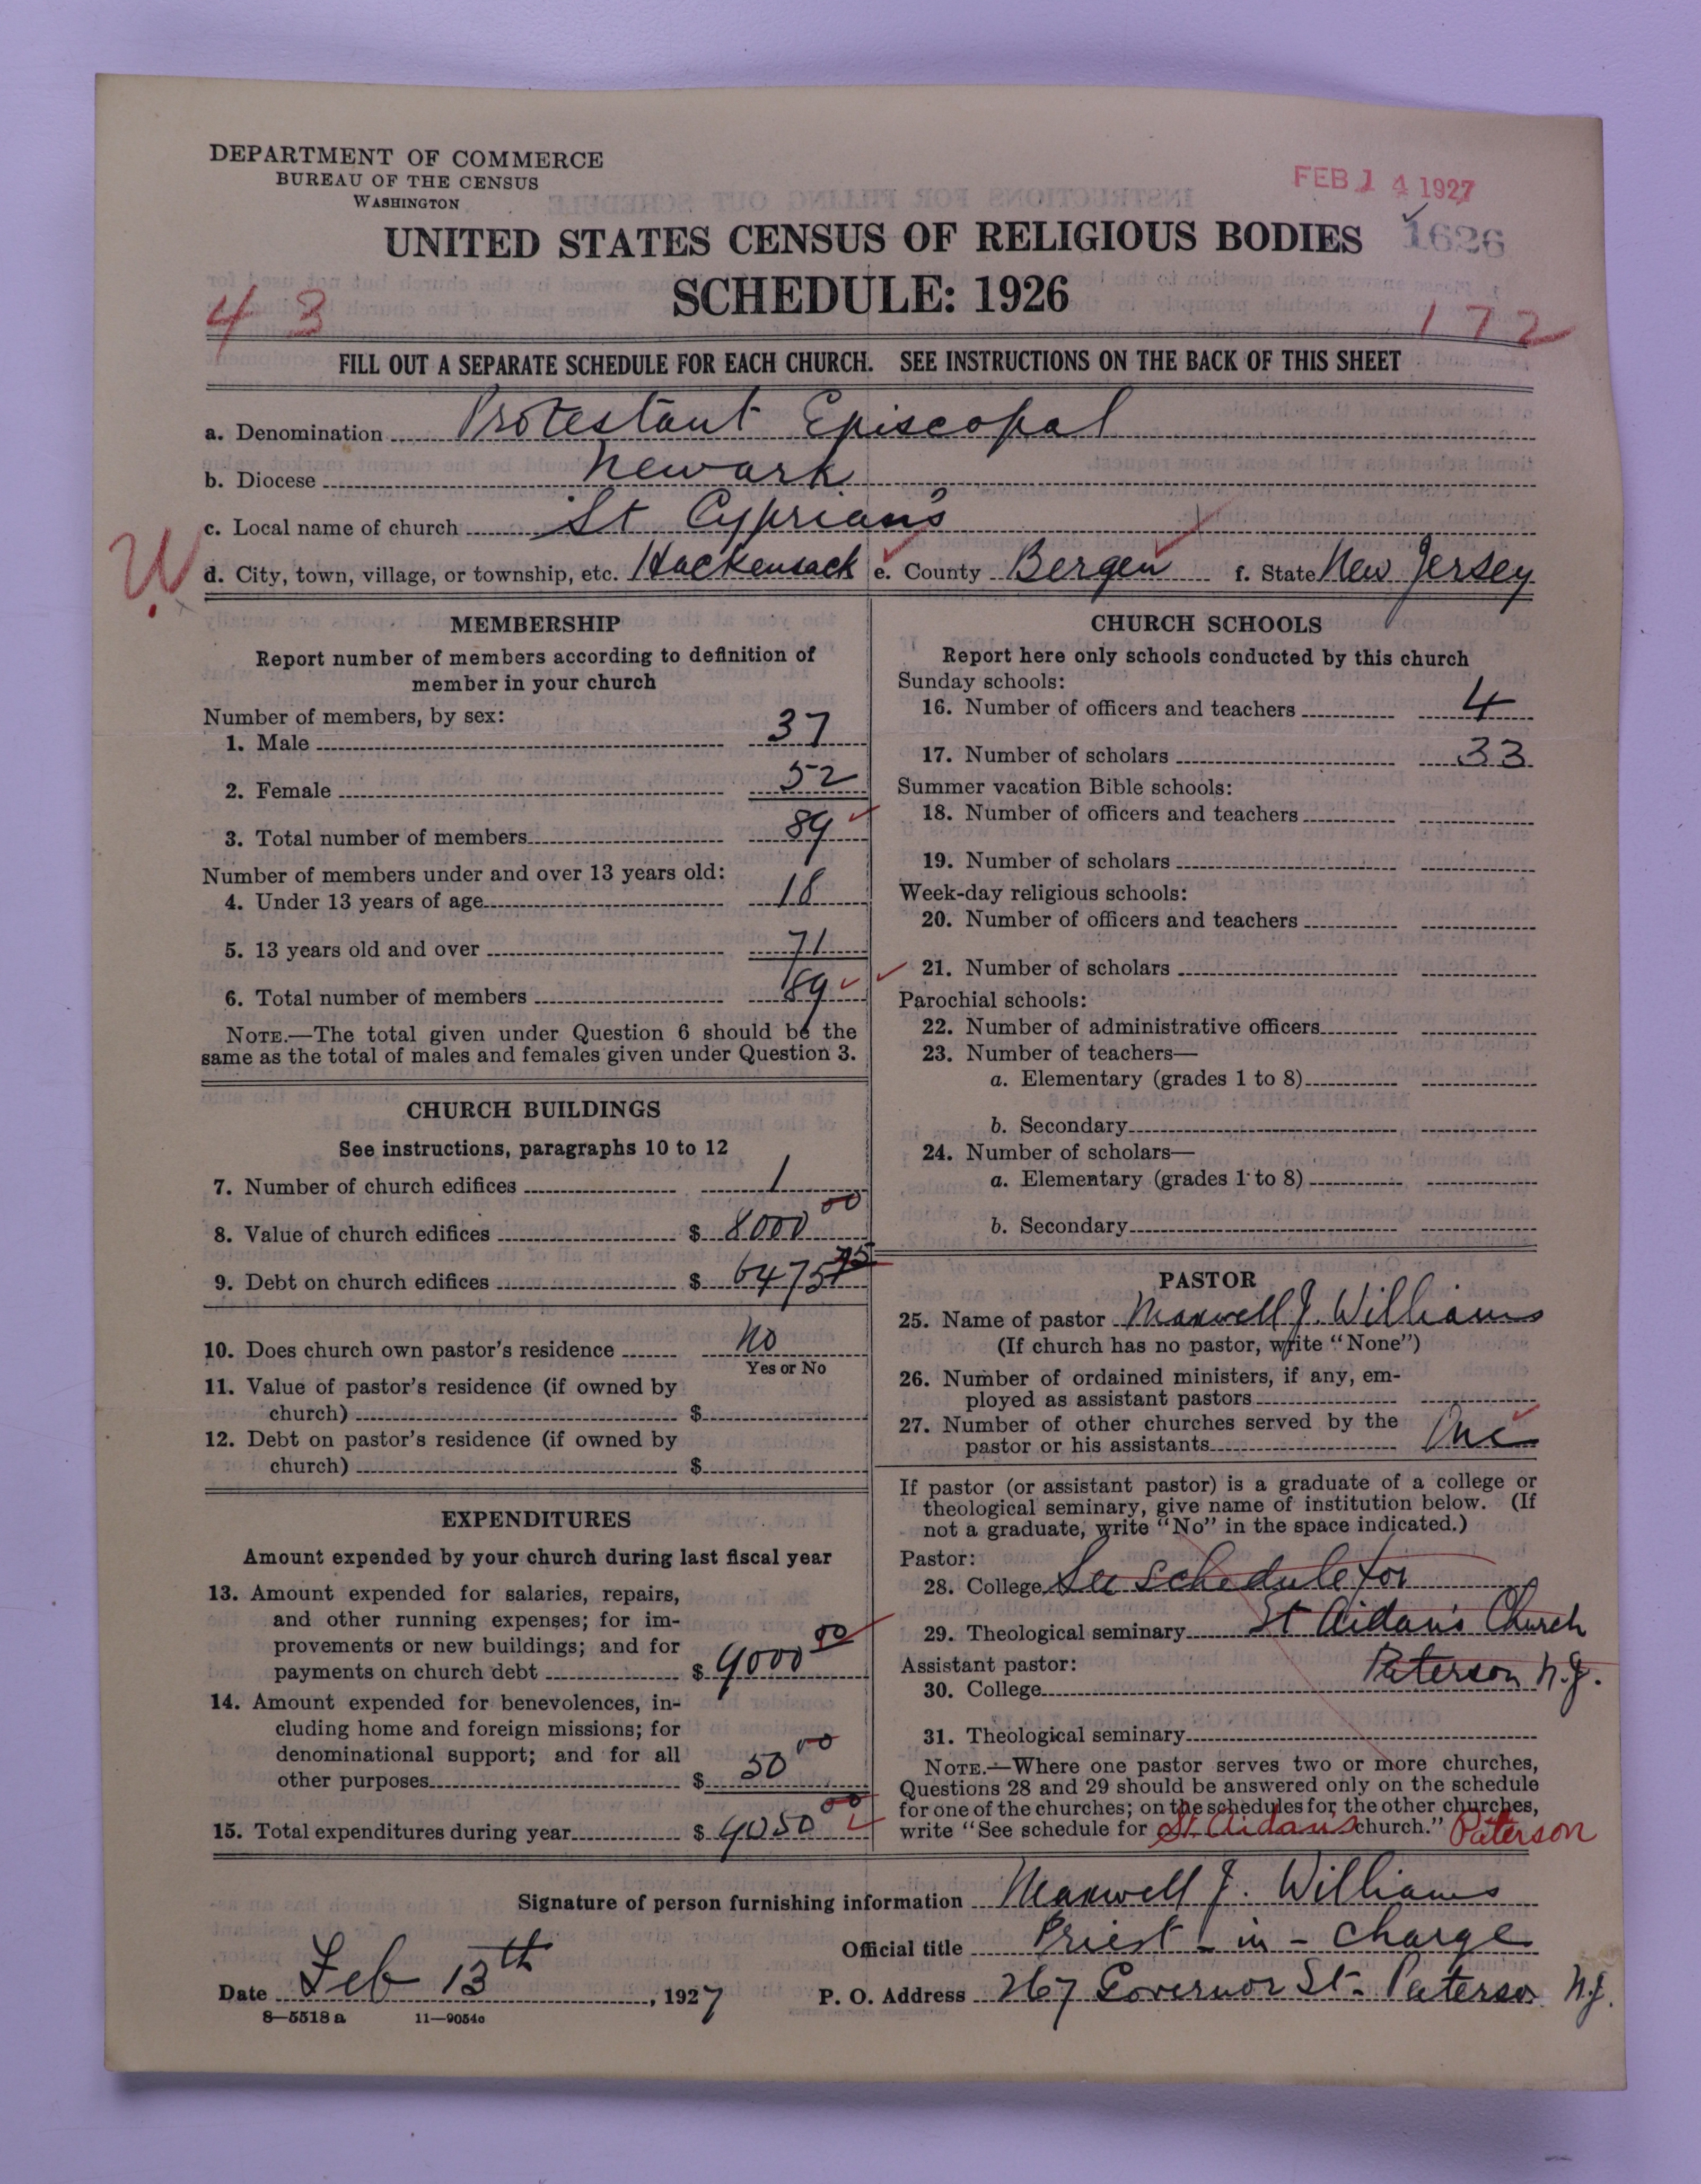 DEPARTMENT OF COMMERCE
BUREAU OF THE CENSUS
WASHINGTON
FEB 14 1927
UNITED STATES CENSUS OF RELIGIOUS BODIES 1626
SCHEDULE: 1926
43 172
FILL OUT A SEPARATE SCHEDULE FOR EACH CHURCH. SEE INSTRUCTIONS ON THE BACK OF THIS SHEET
a. Denomination Protestant Episcopal
b. Diocese Newark
c. Local name of church St Cyprian's
d. City, town, village, or township, etc. Hackensack e. County Bergen f. State New Jersey
MEMBERSHIP
Report number of members according to definition of
member in your church
Number of members, by sex:
1. Male 37
2. Female 52
3. Total number of members 89
Number of members under and over 13 years old:
4. Under 13 years of age 18
5. 13 years old and over 71
6. Total number of members 89
NOTE.—The total given under Question 6 should be the
same as the total of males and females given under Question 3.
CHURCH BUILDINGS
See instructions, paragraphs 10 to 12
7. Number of church edifices 1
8. Value of church edifices $ 8000 00
9. Debt on church edifices $ 6475
10. Does church own pastor's residence No
Yes or No
11. Value of pastor's residence (if owned by
church) $
12. Debt on pastor's residence (if owned by
church) $
EXPENDITURES
Amount expended by your church during last fiscal year
13. Amount expended for salaries, repairs,
and other running expenses; for im-
provements or new buildings; and for
payments on church debt $ 9000 00
14. Amount expended for benevolences, in-
cluding home and foreign missions; for
denominational support; and for all
other purposes $ 50 00
15. Total expenditures during year $ 9050 00
CHURCH SCHOOLS
Report here only schools conducted by this church
Sunday schools:
16. Number of officers and teachers 4
17. Number of scholars 33
Summer vacation Bible schools:
18. Number of officers and teachers
19. Number of scholars
Week-day religious schools:
20. Number of officers and teachers
21. Number of scholars
Parochial schools:
22. Number of administrative officers
23. Number of teachers—
a. Elementary (grades 1 to 8)
b. Secondary
24. Number of scholars—
a. Elementary (grades 1 to 8)
b. Secondary
PASTOR
25. Name of pastor Maxwell J. Williams
(If church has no pastor, write "None")
26. Number of ordained ministers, if any, em-
ployed as assistant pastors
27. Number of other churches served by the
pastor or his assistants One
If pastor (or assistant pastor) is a graduate of a college or
theological seminary, give name of institution below. (If
not a graduate, write "No" in the space indicated.)
Pastor:
28. College See Schedule for
29. Theological seminary St Aidan's Church
Assistant pastor: Paterson N.J.
30. College
31. Theological seminary
NOTE.—Where one pastor serves two or more churches,
Questions 28 and 29 should be answered only on the schedule
for one of the churches; on the schedules for the other churches,
write "See schedule for St. Aidan's church." Paterson
Signature of person furnishing information Maxwell J. Williams
Official title Priest-in-charge
Date Feb 13th, 1927 P. O. Address 267 Governor St- Paterson N.J.
8—5518 a 11—9054c